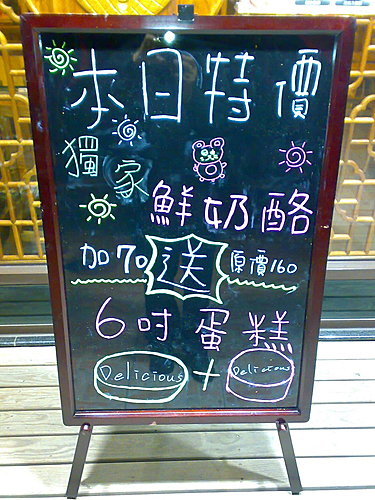 本日特價
獨家
鮮奶酪
加70 送 原價160
6吋蛋糕
Delicious + Delicious